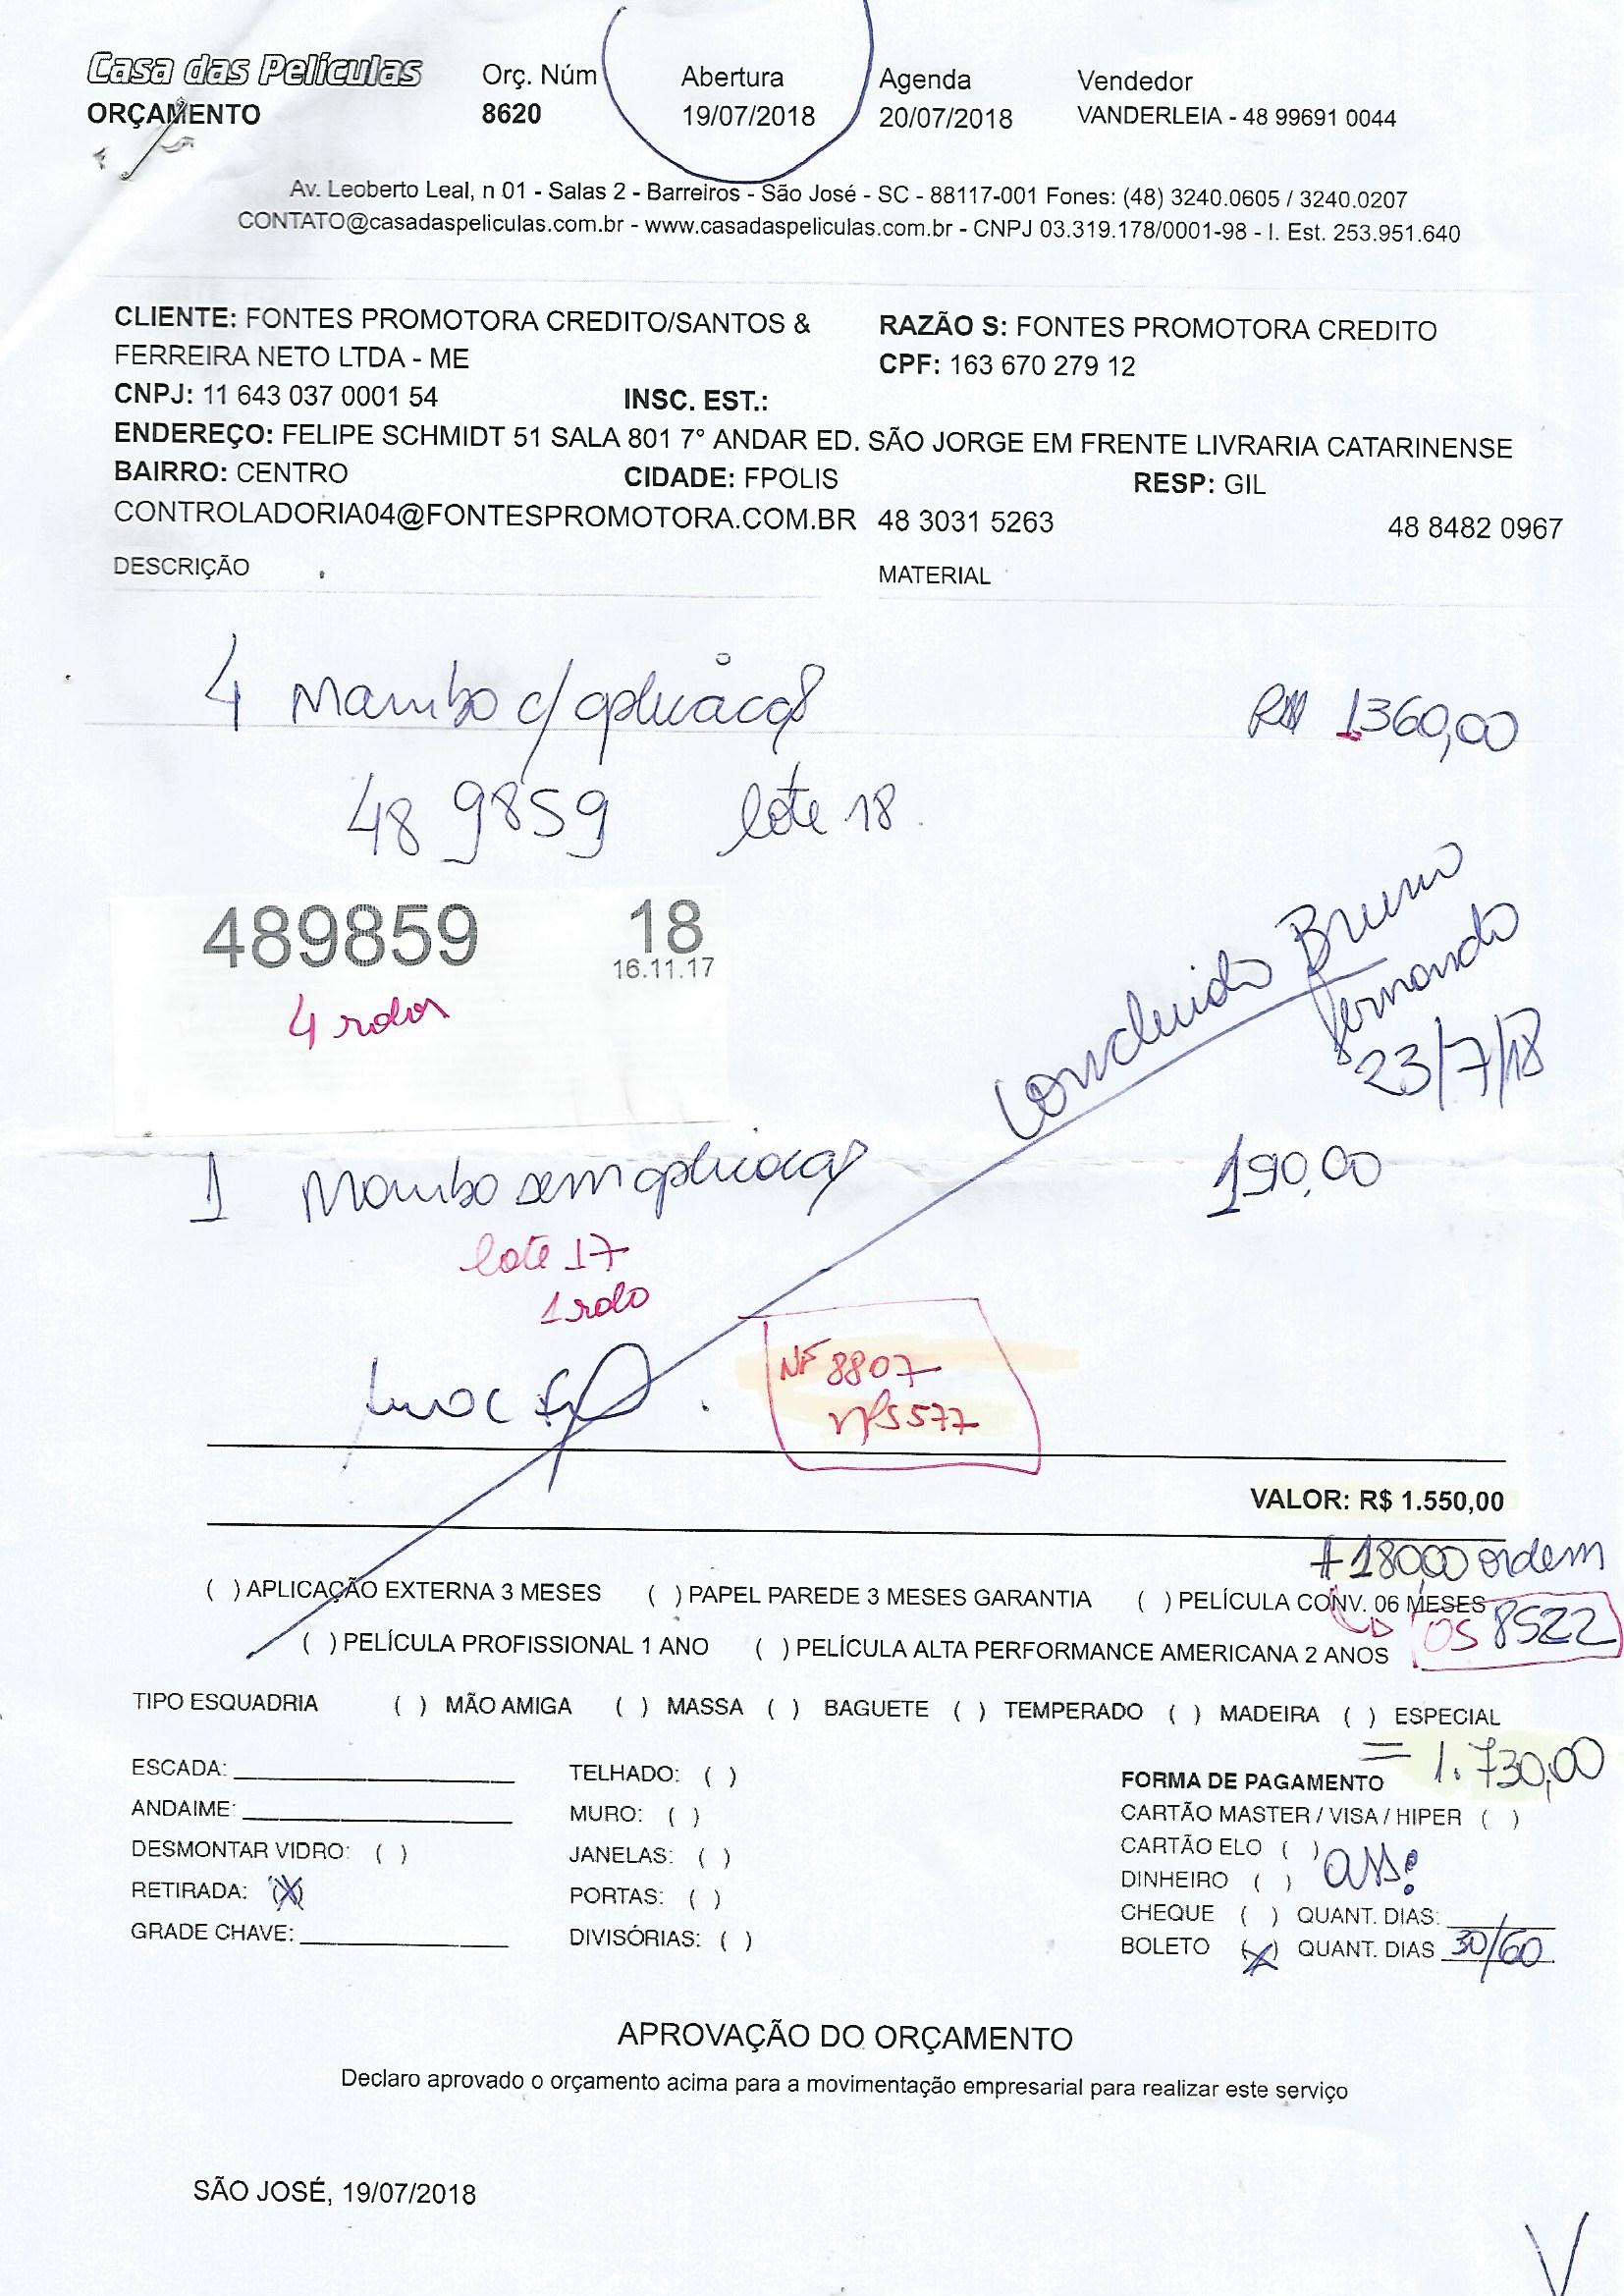 Casa das Películas
ORÇAMENTO
Orç. Núm
8620
Abertura
19/07/2018
Agenda
20/07/2018
Vendedor
VANDERLEIA - 48 99691 0044
Av. Leoberto Leal, n 01 - Salas 2 - Barreiros - São José - SC - 88117-001 Fones: (48) 3240.0605 / 3240.0207
CONTATO@casadaspeliculas.com.br - www.casadaspeliculas.com.br - CNPJ 03.319.178/0001-98 - I. Est. 253.951.640
CLIENTE: FONTES PROMOTORA CREDITO/SANTOS &
FERREIRA NETO LTDA - ME
RAZÃO S: FONTES PROMOTORA CREDITO
CPF: 163 670 279 12
CNPJ: 11 643 037 0001 54 INSC. EST.:
ENDEREÇO: FELIPE SCHMIDT 51 SALA 801 7° ANDAR ED. SÃO JORGE EM FRENTE LIVRARIA CATARINENSE
BAIRRO: CENTRO CIDADE: FPOLIS RESP: GIL
CONTROLADORIA04@FONTESPROMOTORA.COM.BR 48 3031 5263 48 8482 0967
DESCRIÇÃO MATERIAL
4 Mambo c/ aplicação 1360,00
48 9859 lote 18
489859 18
16.11.17
4 rolos
Concluido Bruno
Fernando
23/7/18
1 Mambo sem aplicação 190,00
lote 17
1 rolo
NF 8807
NFS 577
VALOR: R$ 1.550,00
+ 180,00 ordem
( ) APLICAÇÃO EXTERNA 3 MESES ( ) PAPEL PAREDE 3 MESES GARANTIA ( ) PELÍCULA CONV. 06 MESES
OS 8522
( ) PELÍCULA PROFISSIONAL 1 ANO ( ) PELÍCULA ALTA PERFORMANCE AMERICANA 2 ANOS
TIPO ESQUADRIA ( ) MÃO AMIGA ( ) MASSA ( ) BAGUETE ( ) TEMPERADO ( ) MADEIRA ( ) ESPECIAL
= 1.730,00
ESCADA: TELHADO: ( ) FORMA DE PAGAMENTO
ANDAIME: MURO: ( ) CARTÃO MASTER / VISA / HIPER ( )
DESMONTAR VIDRO: ( ) JANELAS: ( ) CARTÃO ELO ( )
RETIRADA: (X) PORTAS: ( ) DINHEIRO ( ) ass:
GRADE CHAVE: DIVISÓRIAS: ( ) CHEQUE ( ) QUANT. DIAS:
BOLETO (X) QUANT. DIAS 30/60
APROVAÇÃO DO ORÇAMENTO
Declaro aprovado o orçamento acima para a movimentação empresarial para realizar este serviço
SÃO JOSÉ, 19/07/2018